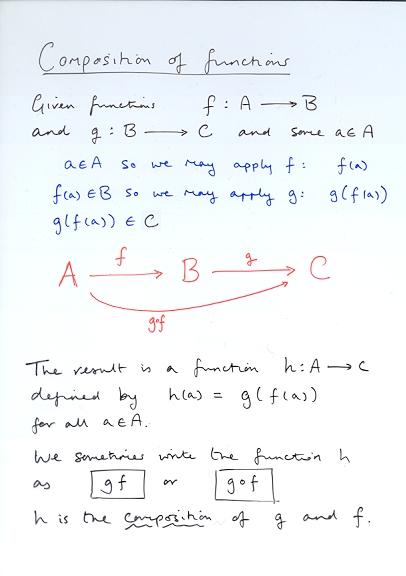 Composition of functions
Given functions f : A → B
and g : B → C and some a ∈ A
a ∈ A so we may apply f : f(a)
f(a) ∈ B so we may apply g : g(f(a))
g(f(a)) ∈ C
f g
A → B → C
g∘f
The result is a function h : A → C
defined by h(a) = g(f(a))
for all a ∈ A.
We sometimes write the function h
as gf or g∘f
h is the composition of g and f.